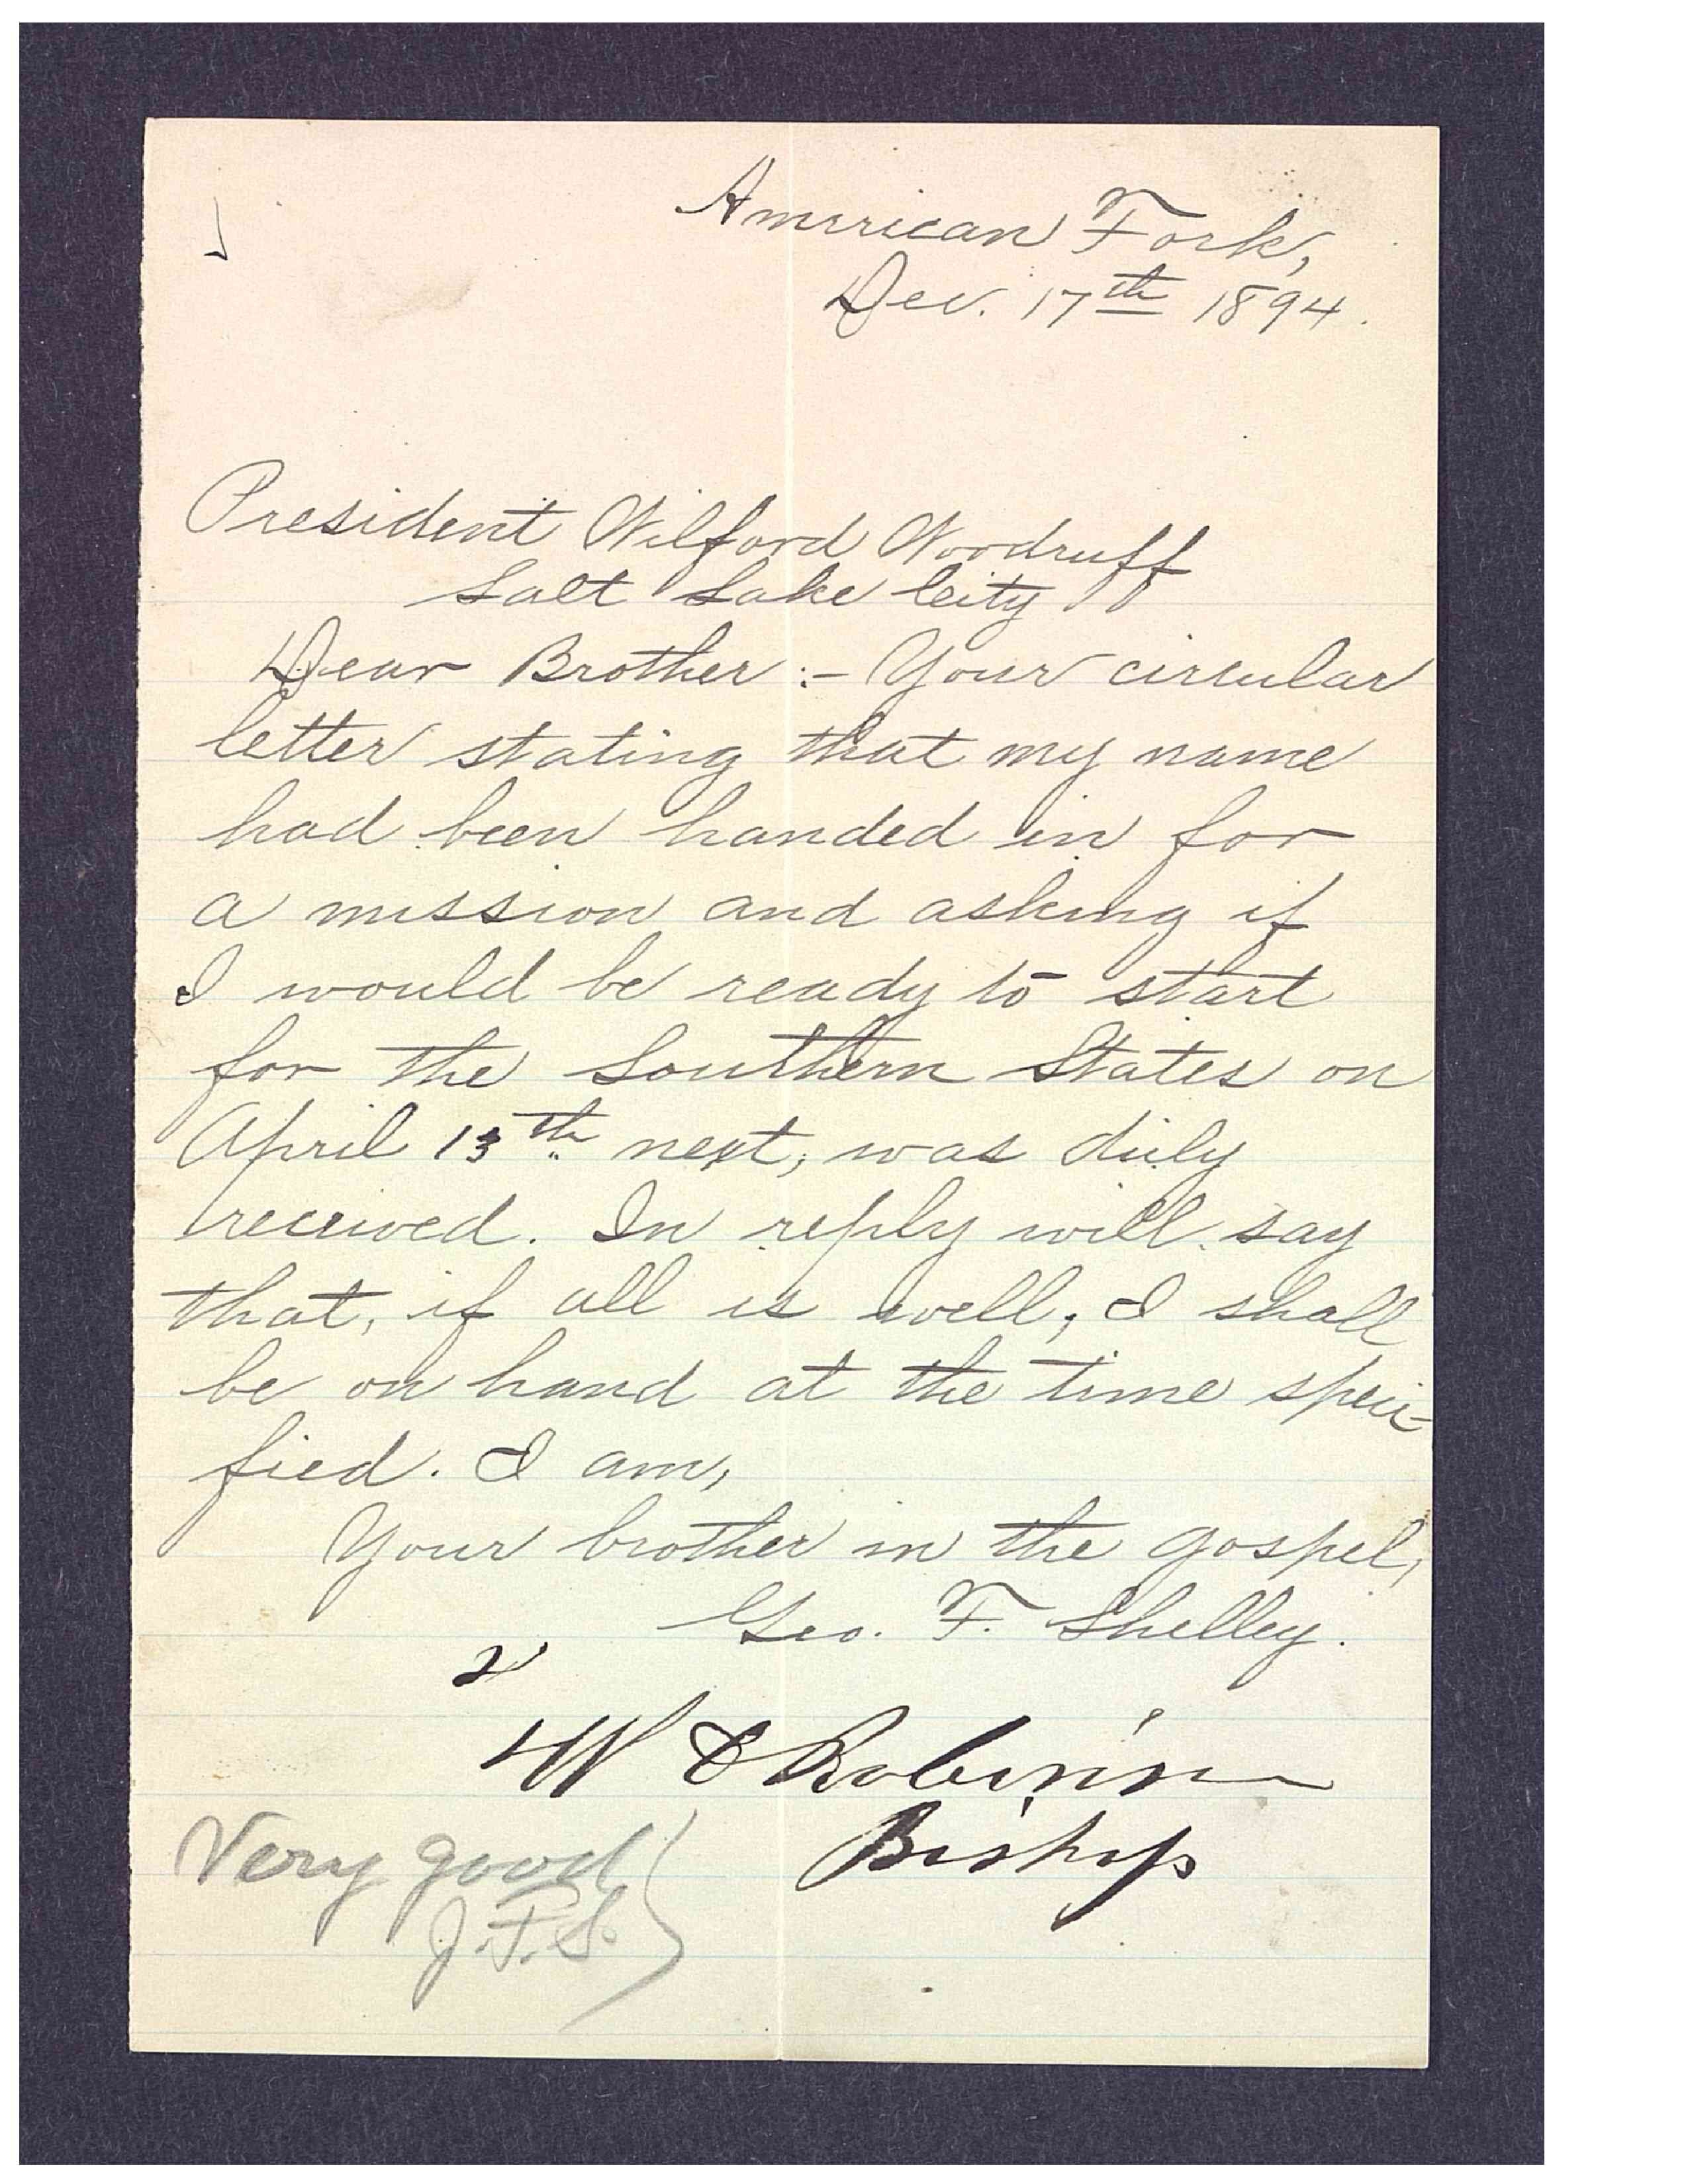 American Fork,
Dec. 17th 1894.
President Wilford Woodruff
Salt Lake City
Dear Brother:- Your circular
letter stating that my name
had been handed in for
a mission and asking if
I would be ready to start
for the Southern States on
April 13th next, was duly
received. In reply will say
that, if all is well, I shall
be on hand at the time speci-
fied. I am,
Your brother in the gospel,
Geo. F. Shelley.
W E Robinson
Bishop
Very good
J.F.S.